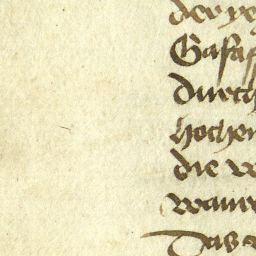 der ye
Gasa
durch
hochen
die w
waur
Das